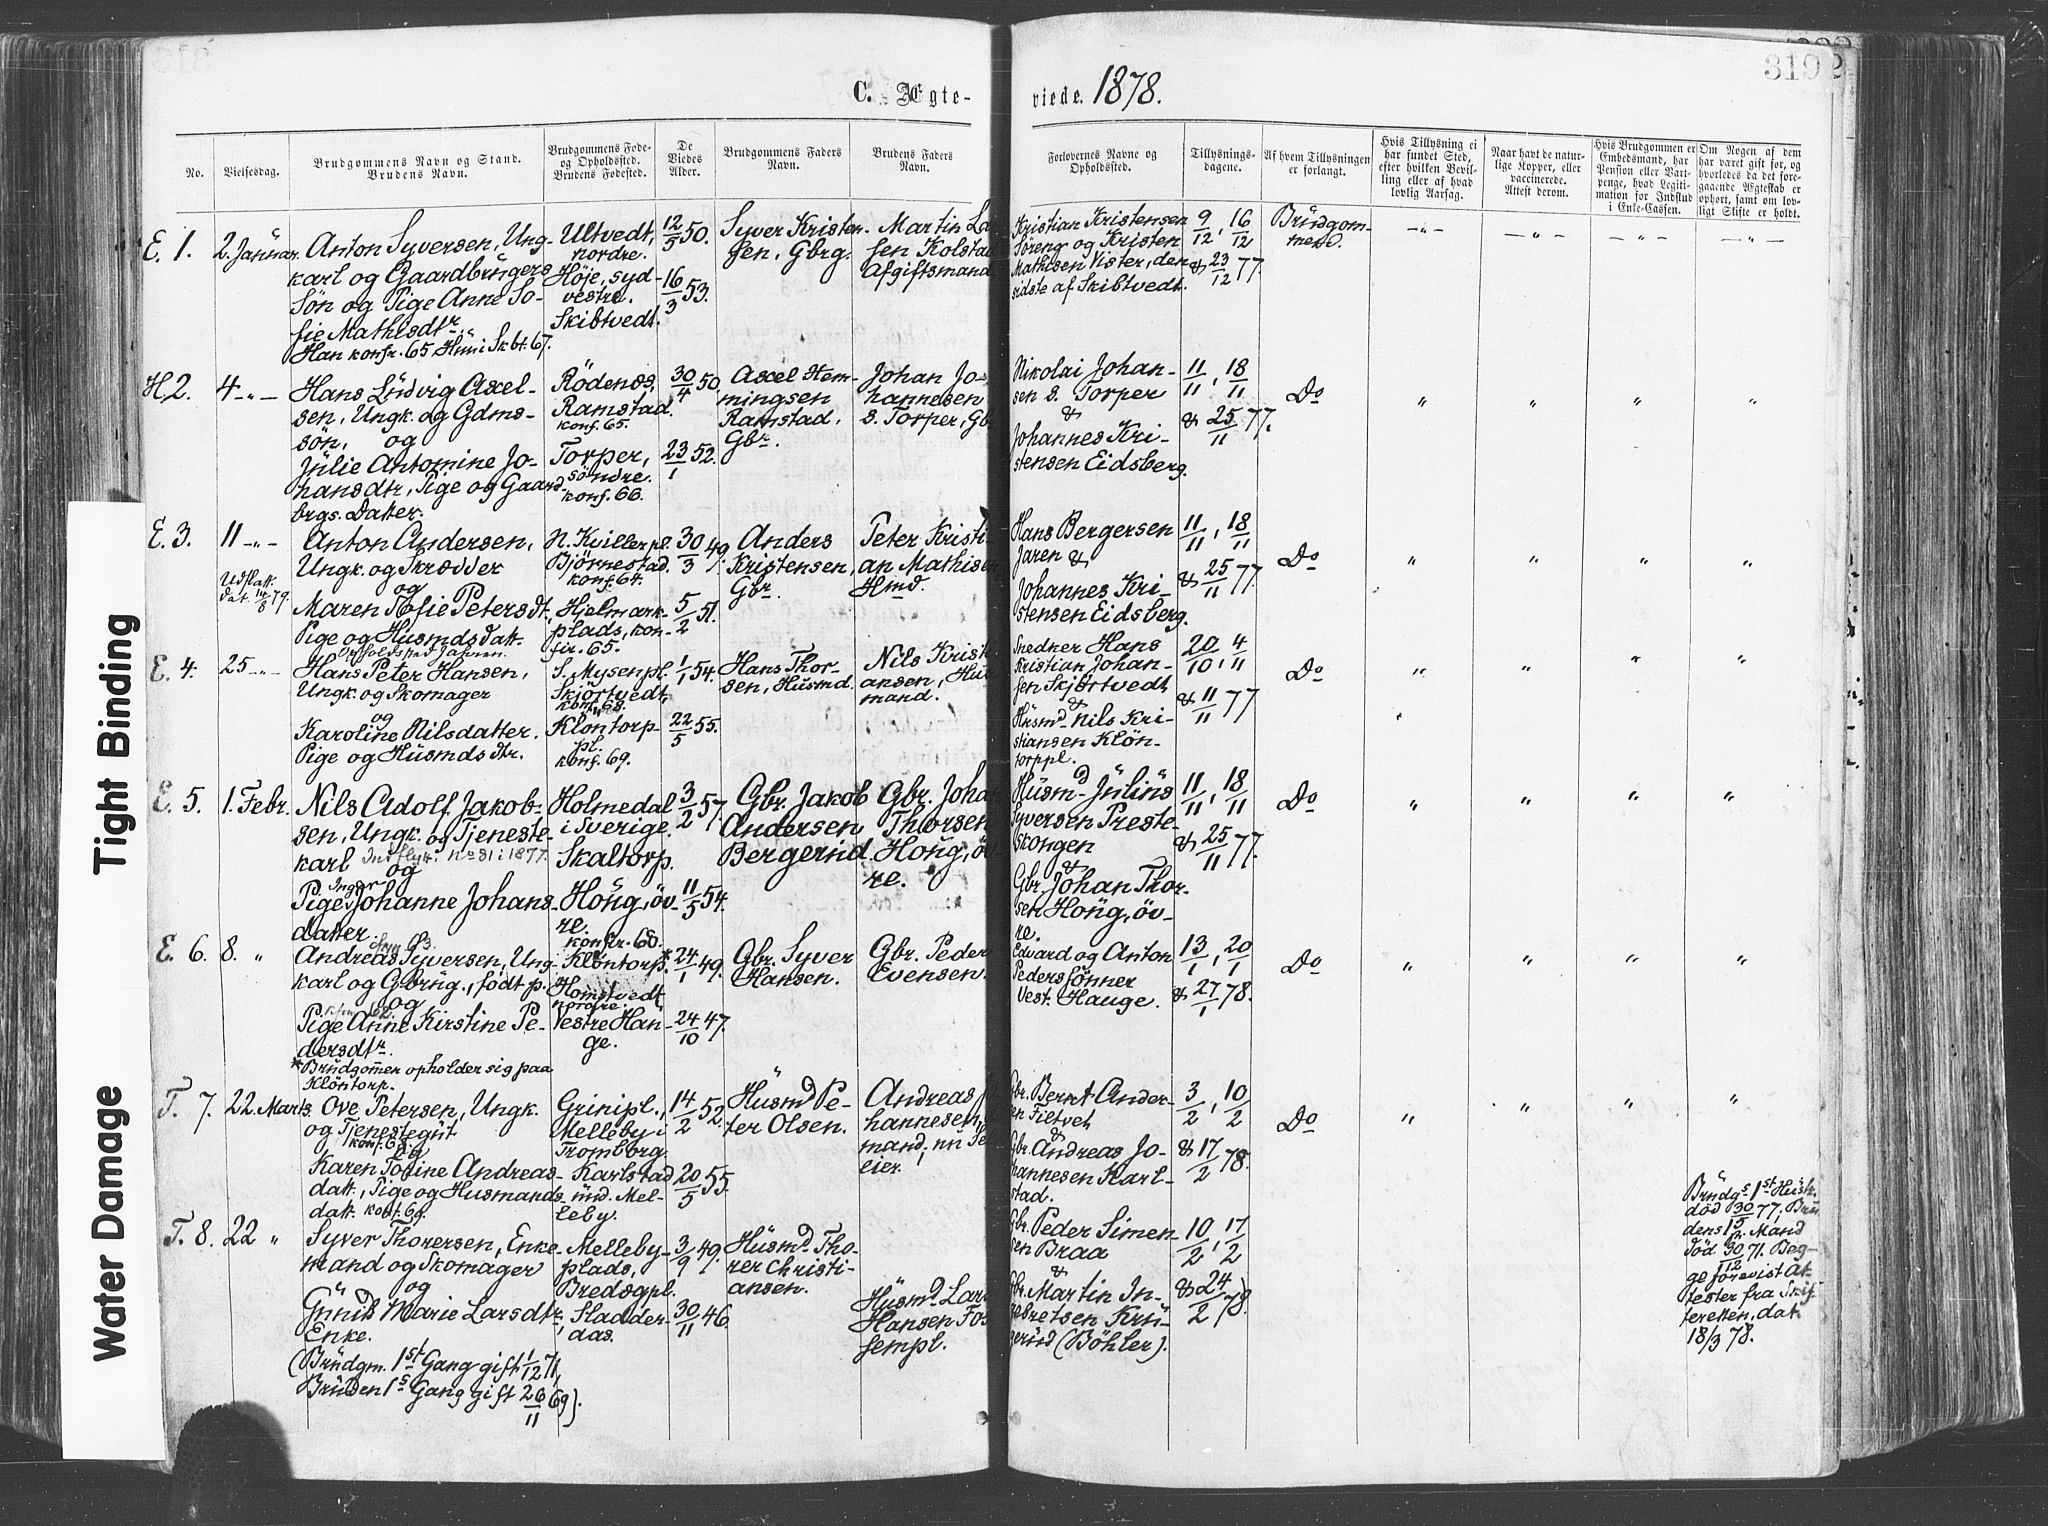 C. Ægte-
viede. 1878.
319
No.
Vielsesdag.
Brudgommens Navn og Stand.
Brudens Navn.
Brudgommens Føde-
og Opholdssted.
Brudens Fødested.
De
Viedes
Alder.
Brudgommens Faders
Navn.
Brudens Faders
Navn.
Forlovernes Navne og
Opholdssted.
Tillysnings-
dagene.
Af hvem Tillysningen
er forlangt.
Hvis Tillysning ei
har fundet Sted,
efter hvilken Bevil-
ling eller af hvad
lovlig Aarsag.
Naar havt de natur-
lige Kopper, eller
vaccinerede.
Attest derom.
Hvis Brudgommen er
Embedsmand, har
Pension eller Vart-
penge, hvad Legiti-
mation for Indskud
i Enke-Cassen.
Om Nogen af dem
har været gift før, og
hvorledes da det fore-
gaaende Ægteskab er
ophørt, samt om lov-
ligt Skifte er holdt.
E. 1.
2. Januar.
Anton Syversen, Ung-
karl og Gaardbrugers
Søn og Pige Anne So-
fie Mathisdtr.
Han konfr. 65 Hun i Skbt. 67.
Ultvedt,
nordre.
Høje, syd-
vestre.
Skibtvedt.
12/5 50.
16/3 53.
Syver Kristen-
sen, Gbrg.
Martin La
sen Kolstad
Afgiftsmand
Kristian Kristensen
Søreng og Kristen
Mathisen Vister, den
sidste af Skibtvedt.
9/12, 16/12
& 23/12 77.
Brudgom-
mene.
-"- -"- -"- -"-
H. 2.
4 -"-
Hans Ludvig Axel-
sen, Ungk. og Gdms-
søn, og
Julie Antomine Jo-
hansdtr, Pige og Gaard-
brgs. Datter.
Rødenæs,
Ramstad.
konf. 65.
Torper,
søndre.
konf. 66.
30/4 50.
23/1 52.
Axel Hem-
mingsen
Ramstad,
Gbr.
Johan Jo-
hannesen
s. Torper, Gb
Nikolai Johan-
sen s. Torper
&
Johannes Kri-
stensen Eidsberg.
11/11, 18/11
& 25/11 77.
Do
" " " "
E. 3.
11 -"-
Udflatt.
dat. 14/8 79.
Anton Andersen,
Ungk. og Skrædder
og
Maren Sofie Petersdt,
Pige og Husmdsdatt.
Opholdssted Jahren.
N. Kvillerpl.
Bjørnestad.
konf. 64.
Hjelmark-
plads, kon-
fir. 65.
30/3 49.
5/2 51.
Anders
Kristensen,
Gbr.
Peter Kristi
an Mathisen
Hmd.
Hans Bergersen
Jaren &
Johannes Kri-
stensen Eidsberg.
11/11, 18/11
& 25/11 77.
Do
" " " "
E. 4.
25 -"-
Hans Peter Hansen,
Ungk. og Skomager
og
Karoline Nilsdatter.
Pige og Husmdsdtr.
S. Mysenpl.
Skjørtvedt,
konf. 68.
Kløntorp-
pl.
konf. 69.
1/1 54.
22/5 55.
Hans Thor-
sen, Husmd.
Nils Krist
ansen, Hus
mand.
Snedker Hans
Kristian Johan-
sen Skjørtvedt
&
Husmd. Nils Kri-
stiansen Kløn-
torppl.
20/10, 4/11
& 11/11 77
Do
" " " "
E. 5.
1. Febr.
Nils Adolf Jakob-
sen, Ungk. og Tjeneste-
karl Indflyt. i No 81 i 1877.
og
Pige Inger Johanne Johans-
datter.
Holmedal
i Sverige.
Skaltorp.
Houg, øv-
re.
konfr. 68.
3/2 57.
11/5 54.
Gbr. Jakob
Andersen
Bergerud.
Gbr. Johan
Thorsen
Houg, øv-
re.
Husmd. Julius
Syversen Preste-
skongen
&
Gbr. Johan Thor-
sen Houg, øv-
re.
11/11, 18/11
& 25/11 77.
Do
" " " "
E. 6.
8. "
Andreas Syversen, Ung-
karl og Gbrug., født p.
og
Pige Anne Kirstine Pe-
dersdtr.
*Brudgommen opholder sig paa
Kløntorp.
Kløntorp*
Homstvedt
nordre.
Vestre Hau-
ge.
24/1 49.
24/10 47.
Gbr. Syver
Hansen.
Gbr. Peder
Evensen.
Edvard og Anton
Peders sønner
Vest. Hauge.
13/1, 20/1
& 27/1 78.
Do
" " " "
T. 7.
22. Marts
Ove Petersen, Ungk.
og Tjenestegut
konf. 68
og
Karen Josine Andreas-
datt., Pige og Husmands
datt. konf. 69.
Grinipl.,
Melleby i
Tromborg.
Karlstad
und. Mel-
leby.
14/2 52.
20/5 55.
Husmd Pe-
ter Olsen.
Andreas
hannesen
mand, nu Se
eier.
Gbr. Bernt Ander-
sen Filtvet
&
Gbr. Andreas Jo-
hannesen Karl-
stad.
3/2, 10/2
& 17/2 78.
Do
" " " "
T. 8.
22 "
Syver Thorersen, Enke-
mand og Skomager
og
Gunild Marie Larsdtr,
Enke.
(Brudgm. 1st Gang gift 1/12 71,
Bruden 1s Gang gift 26/11 69).
Melleby-
plads,
Bredsgpl.
Sladder-
aas.
3/9 49.
30/11 46.
Husmd Tho-
rer Christi-
ansen.
Husmd. Lars
Hansen Fos
sempl.
Gbr. Peder Simen-
sen Braa
&
Gbr. Martin In-
gebretsen Kru-
gerud (Bøhler).
10/2, 17/2
& 24/2 78.
Brudgs 1st Hustr.
død 30/5 77. Bru
dens 1st. Mand
død 30/12 71. Beg-
ge forevist At-
tester fra Skif-
teretten, dat.
18/3 78.
Tight Binding
Water Damage